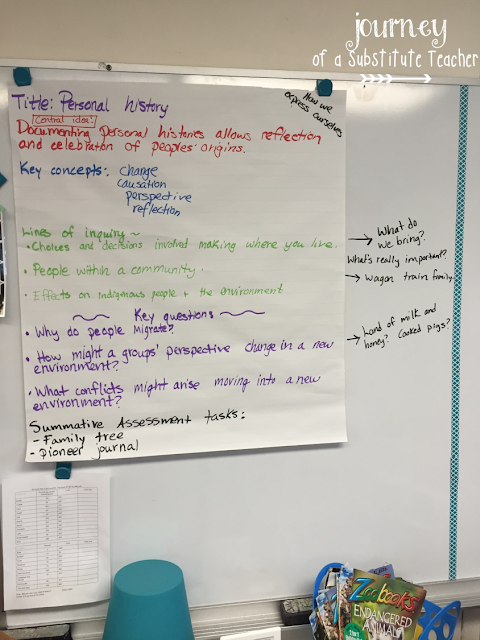 journey
of a Substitute Teacher
Title: Personal history
How we
express ourselves
Central idea:
Documenting personal histories allows reflection
and celebration of peoples' origins.
Key concepts: change
causation
perspective
reflection
Lines of inquiry ~
• Choices and decisions involved making where you live.
• People within a community.
• Effects on indigenous people + the environment
Key questions
• Why do people Migrate?
• How might a groups' perspective change in a new
environment?
• What conflicts might arise moving into a new
environment?
Summative Assessment tasks:
- Family tree
- pioneer journal
→ What do
we bring?
What's really important?
→ Wagon train family
→ Land of milk and
honey? Cooked pigs?
Zoobooks
ENDANGERED
ANIMALS